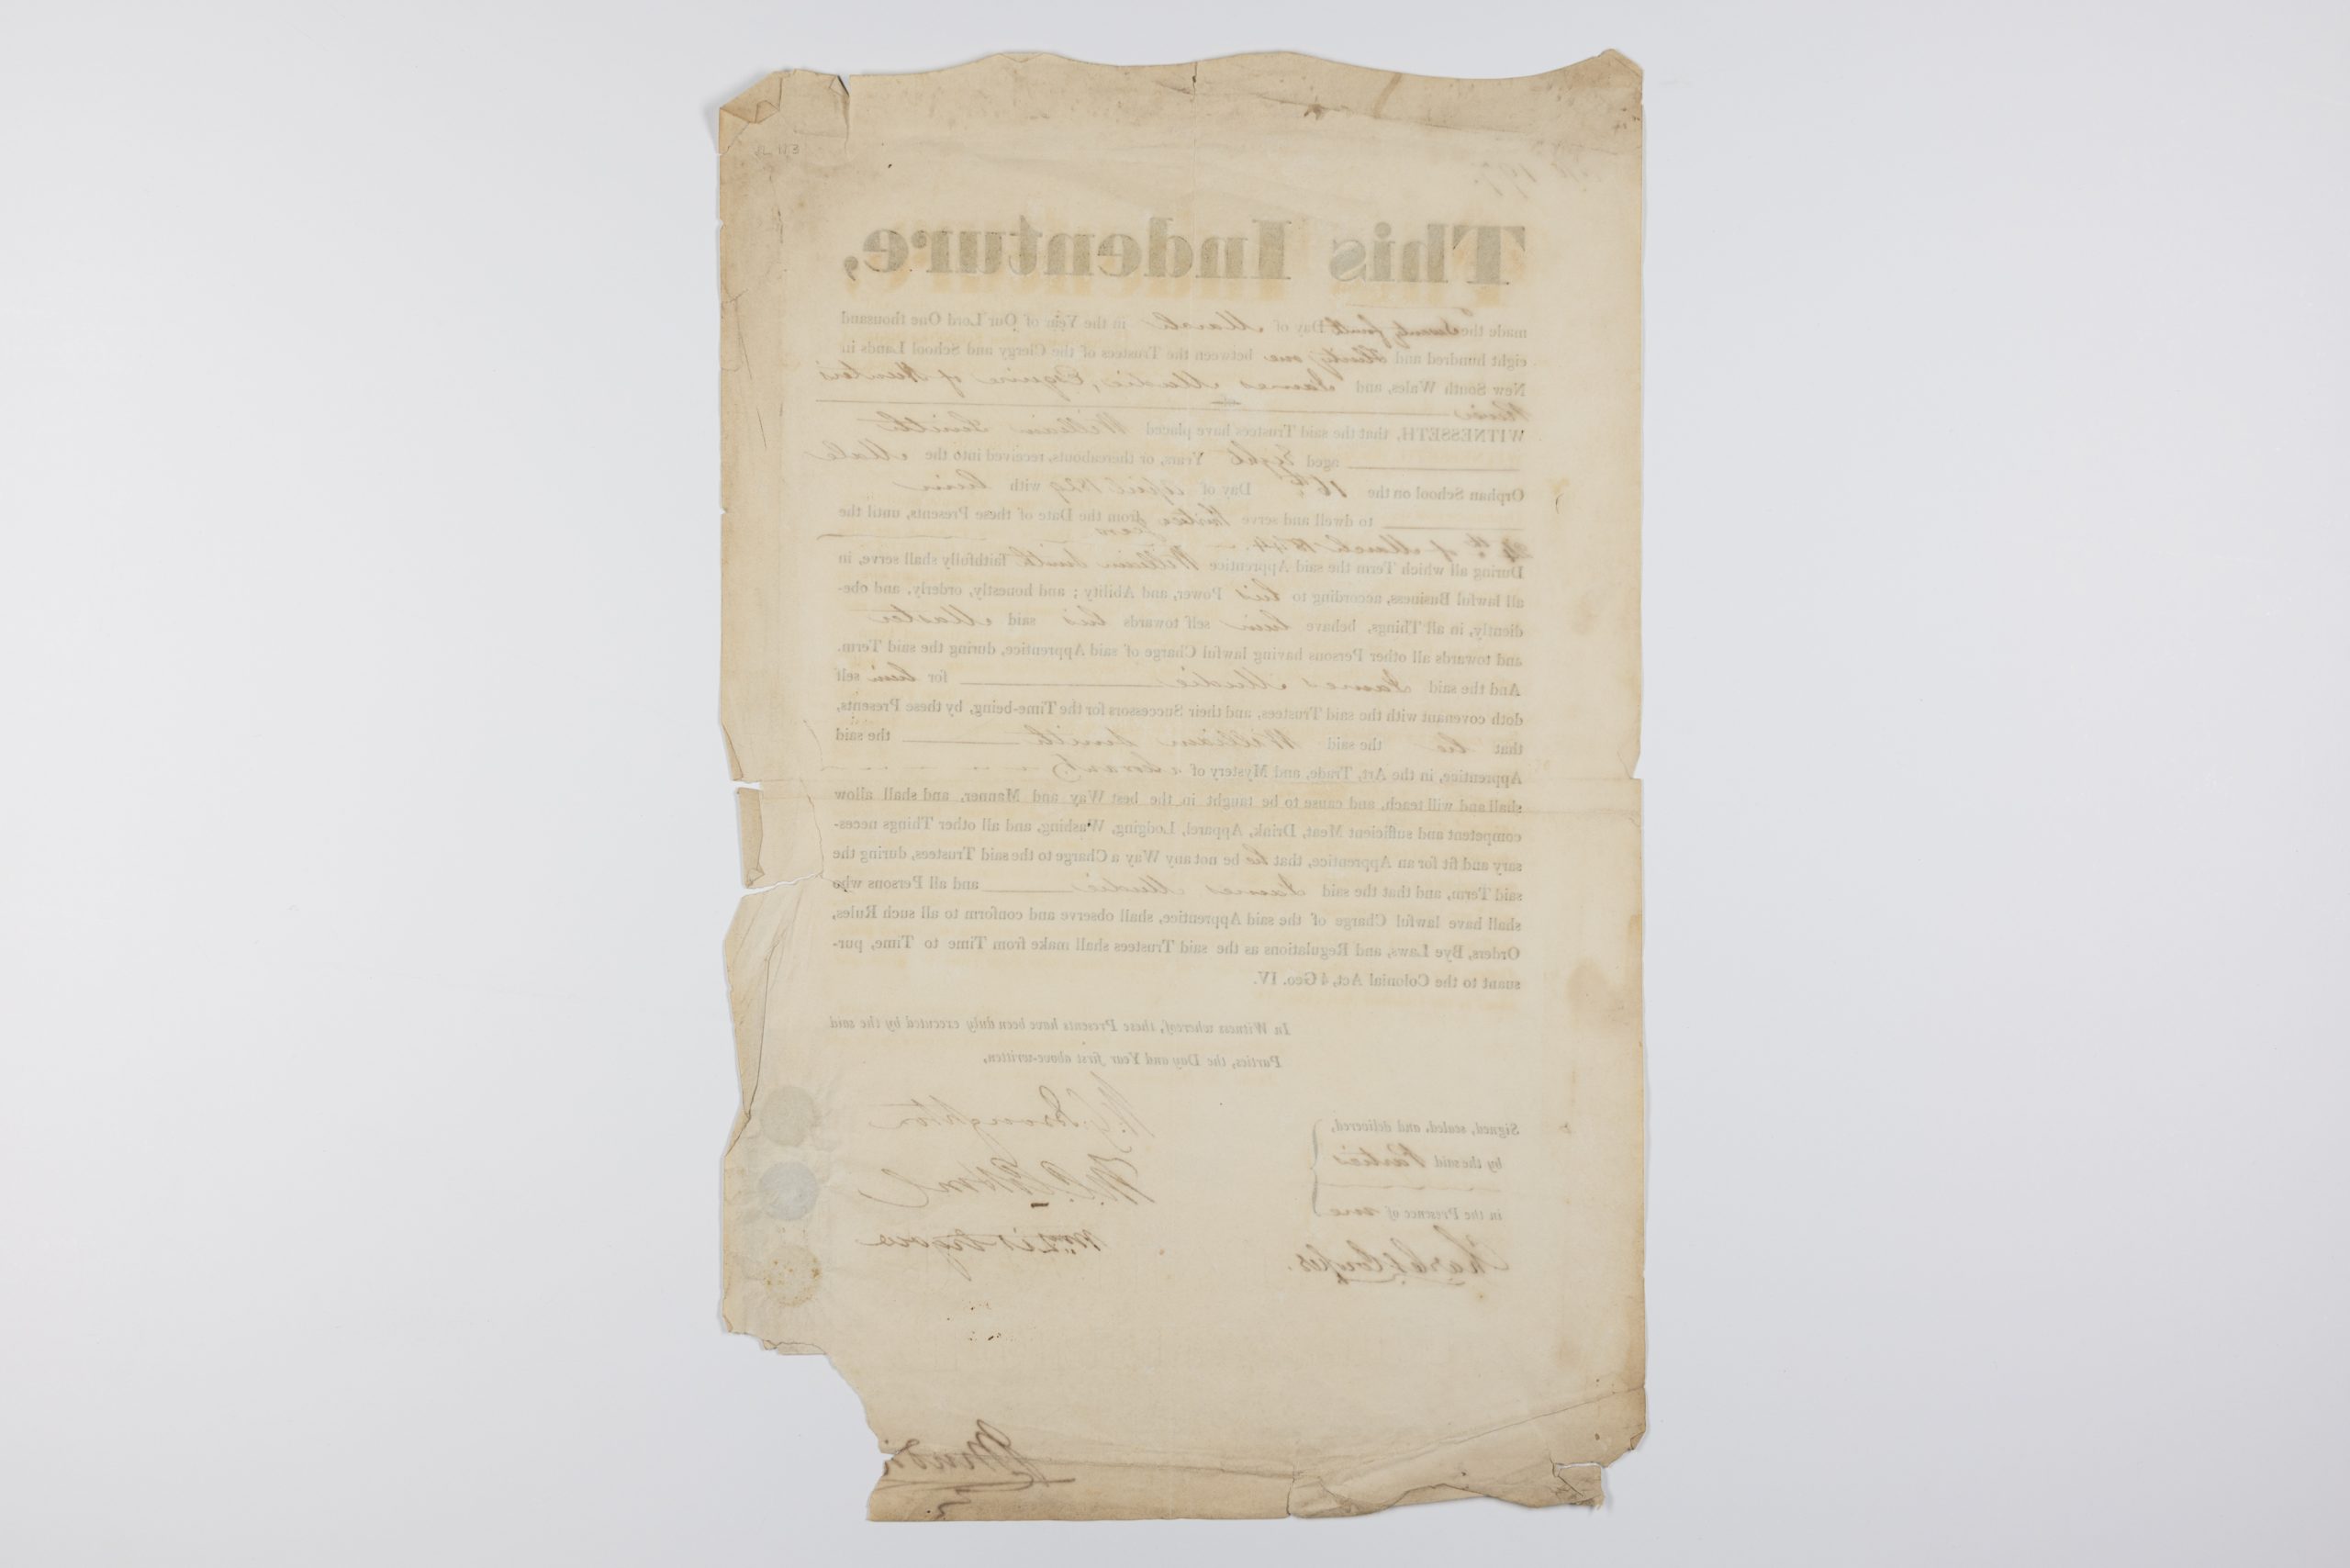 This Indenture,
made the Twenty fourth Day of March in the Year of Our Lord One thousand
eight hundred and Thirty one between the Trustees of the Clergy and School Lands in
New South Wales, and James Mudie, Esquire of Hunter's
River
WITNESSETH, that the said Trustees have placed William Smith
aged Eight Years, or thereabouts, received into the Male
Orphan School on the 16th Day of April 1829 with him
to dwell and serve Thirteen Years from the Date of these Presents, until the
24th of March 1844.
During all which Term the said Apprentice William Smith faithfully shall serve, in
all lawful Business, according to his Power, and Ability; and honestly, orderly, and obe-
diently, in all Things, behave him self towards his said Master
and towards all other Persons having lawful Charge of said Apprentice, during the said Term.
And the said James Mudie for him self
doth covenant with the said Trustees, and their Successors for the Time-being, by these Presents,
that he the said William Smith the said
Apprentice, in the Art, Trade, and Mystery of a Servant
shall and will teach, and cause to be taught in the best Way and Manner, and shall allow
competent and sufficient Meat, Drink, Apparel, Lodging, Washing, and all other Things neces-
sary and fit for an Apprentice, that he be not any Way a Charge to the said Trustees, during the
said Term, and that the said James Mudie and all Persons who
shall have lawful Charge of the said Apprentice, shall observe and conform to all such Rules,
Orders, Bye Laws, and Regulations as the said Trustees shall make from Time to Time, pur-
suant to the Colonial Act, 4 Geo. IV.
In Witness whereof, these Presents have been duly executed by the said
Parties, the Day and Year first above-written.
Signed, sealed, and delivered,
by the said Parties
in the Presence of me
Charles Cowper.
W. G. Broughton